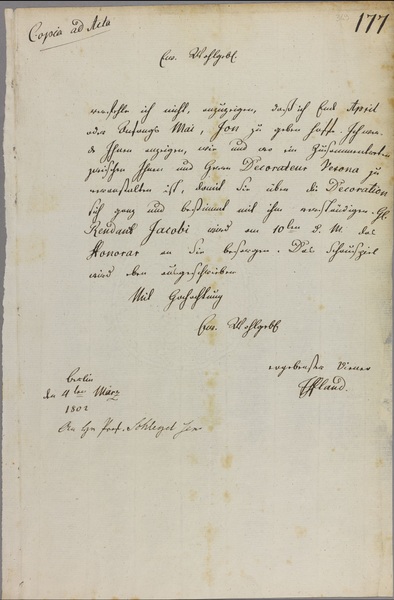 177
Copia ad Acta
Ew. Wohlgeb.
verfehle ich nicht, anzuzeigen, daß ich Ende April
oder Anfangs Mai, Jon zu geben hoffe. Ich werde
Ihnen anzeigen, wie und wo ein Zusammentreten
zwischen Ihnen und Herrn Decorateur Verona zu
veranstalten ist, damit Sie über die Decoration
sich ganz und bestimmt mit ihm verständigen. H.
Rendant Jacobi wird am 10ten d. M. das
Honorar an Sie besorgen. Das Schauspiel
wird eben ausgeschrieben
Mit Hochachtung
Ew. Wohlgeb.
ergebenster Diener
Iffland.
Berlin
den 4ten März
1802
An Hn Prof. Schlegel